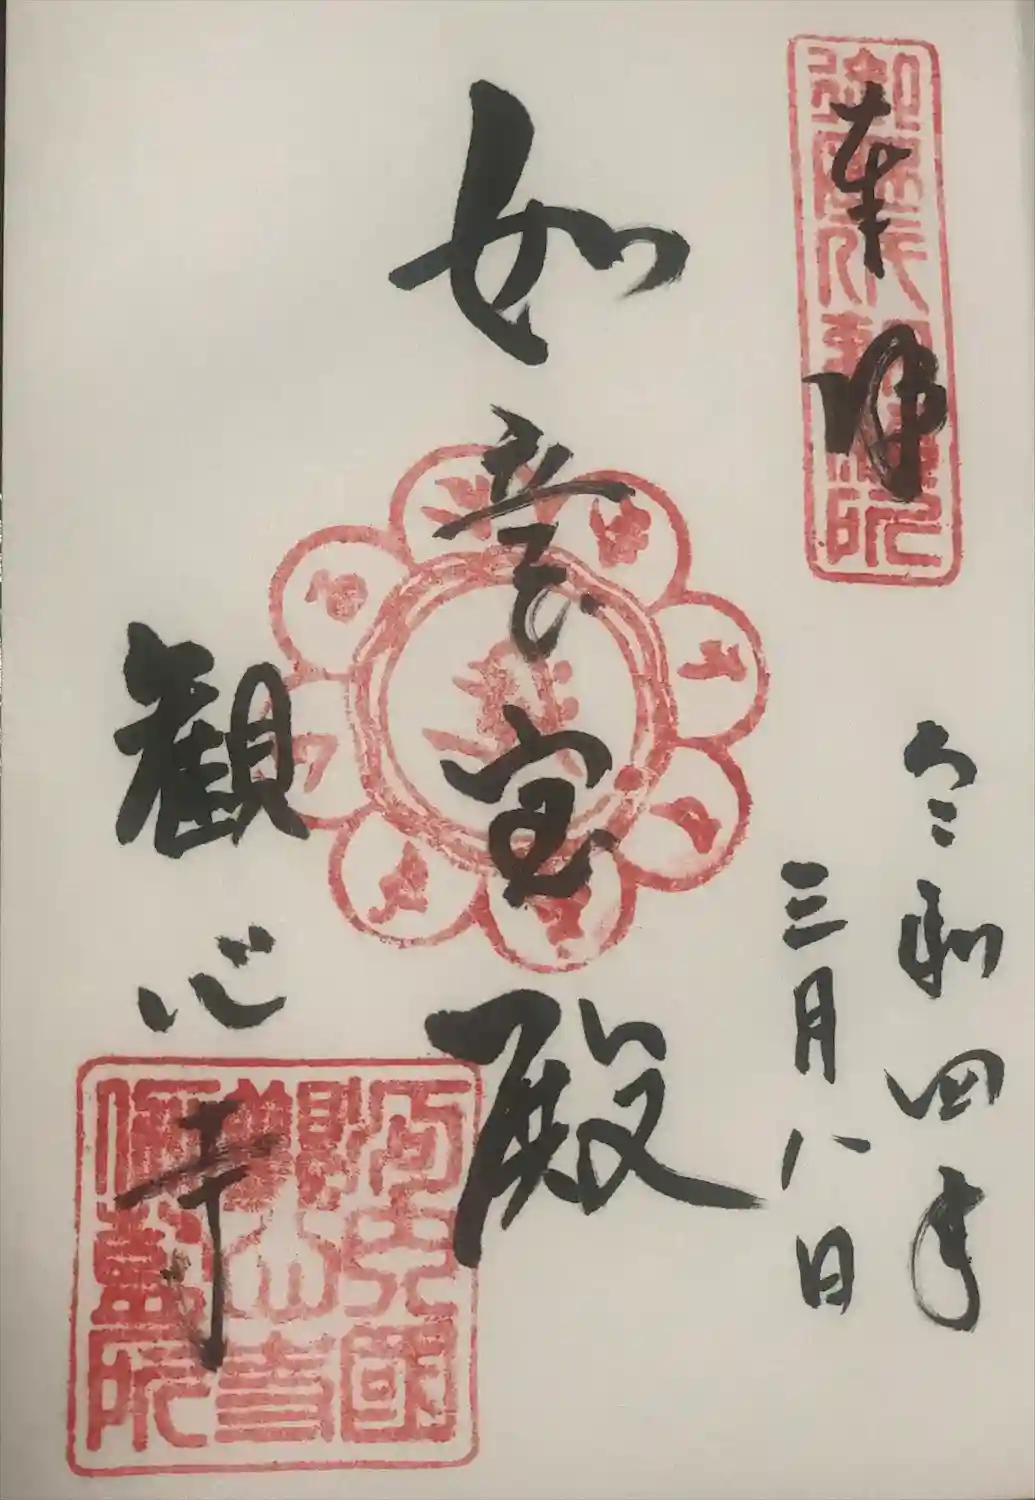 奉拝
令和四年
三月八日
如意宝殿
観心寺
河内國
観心寺
伽藍院